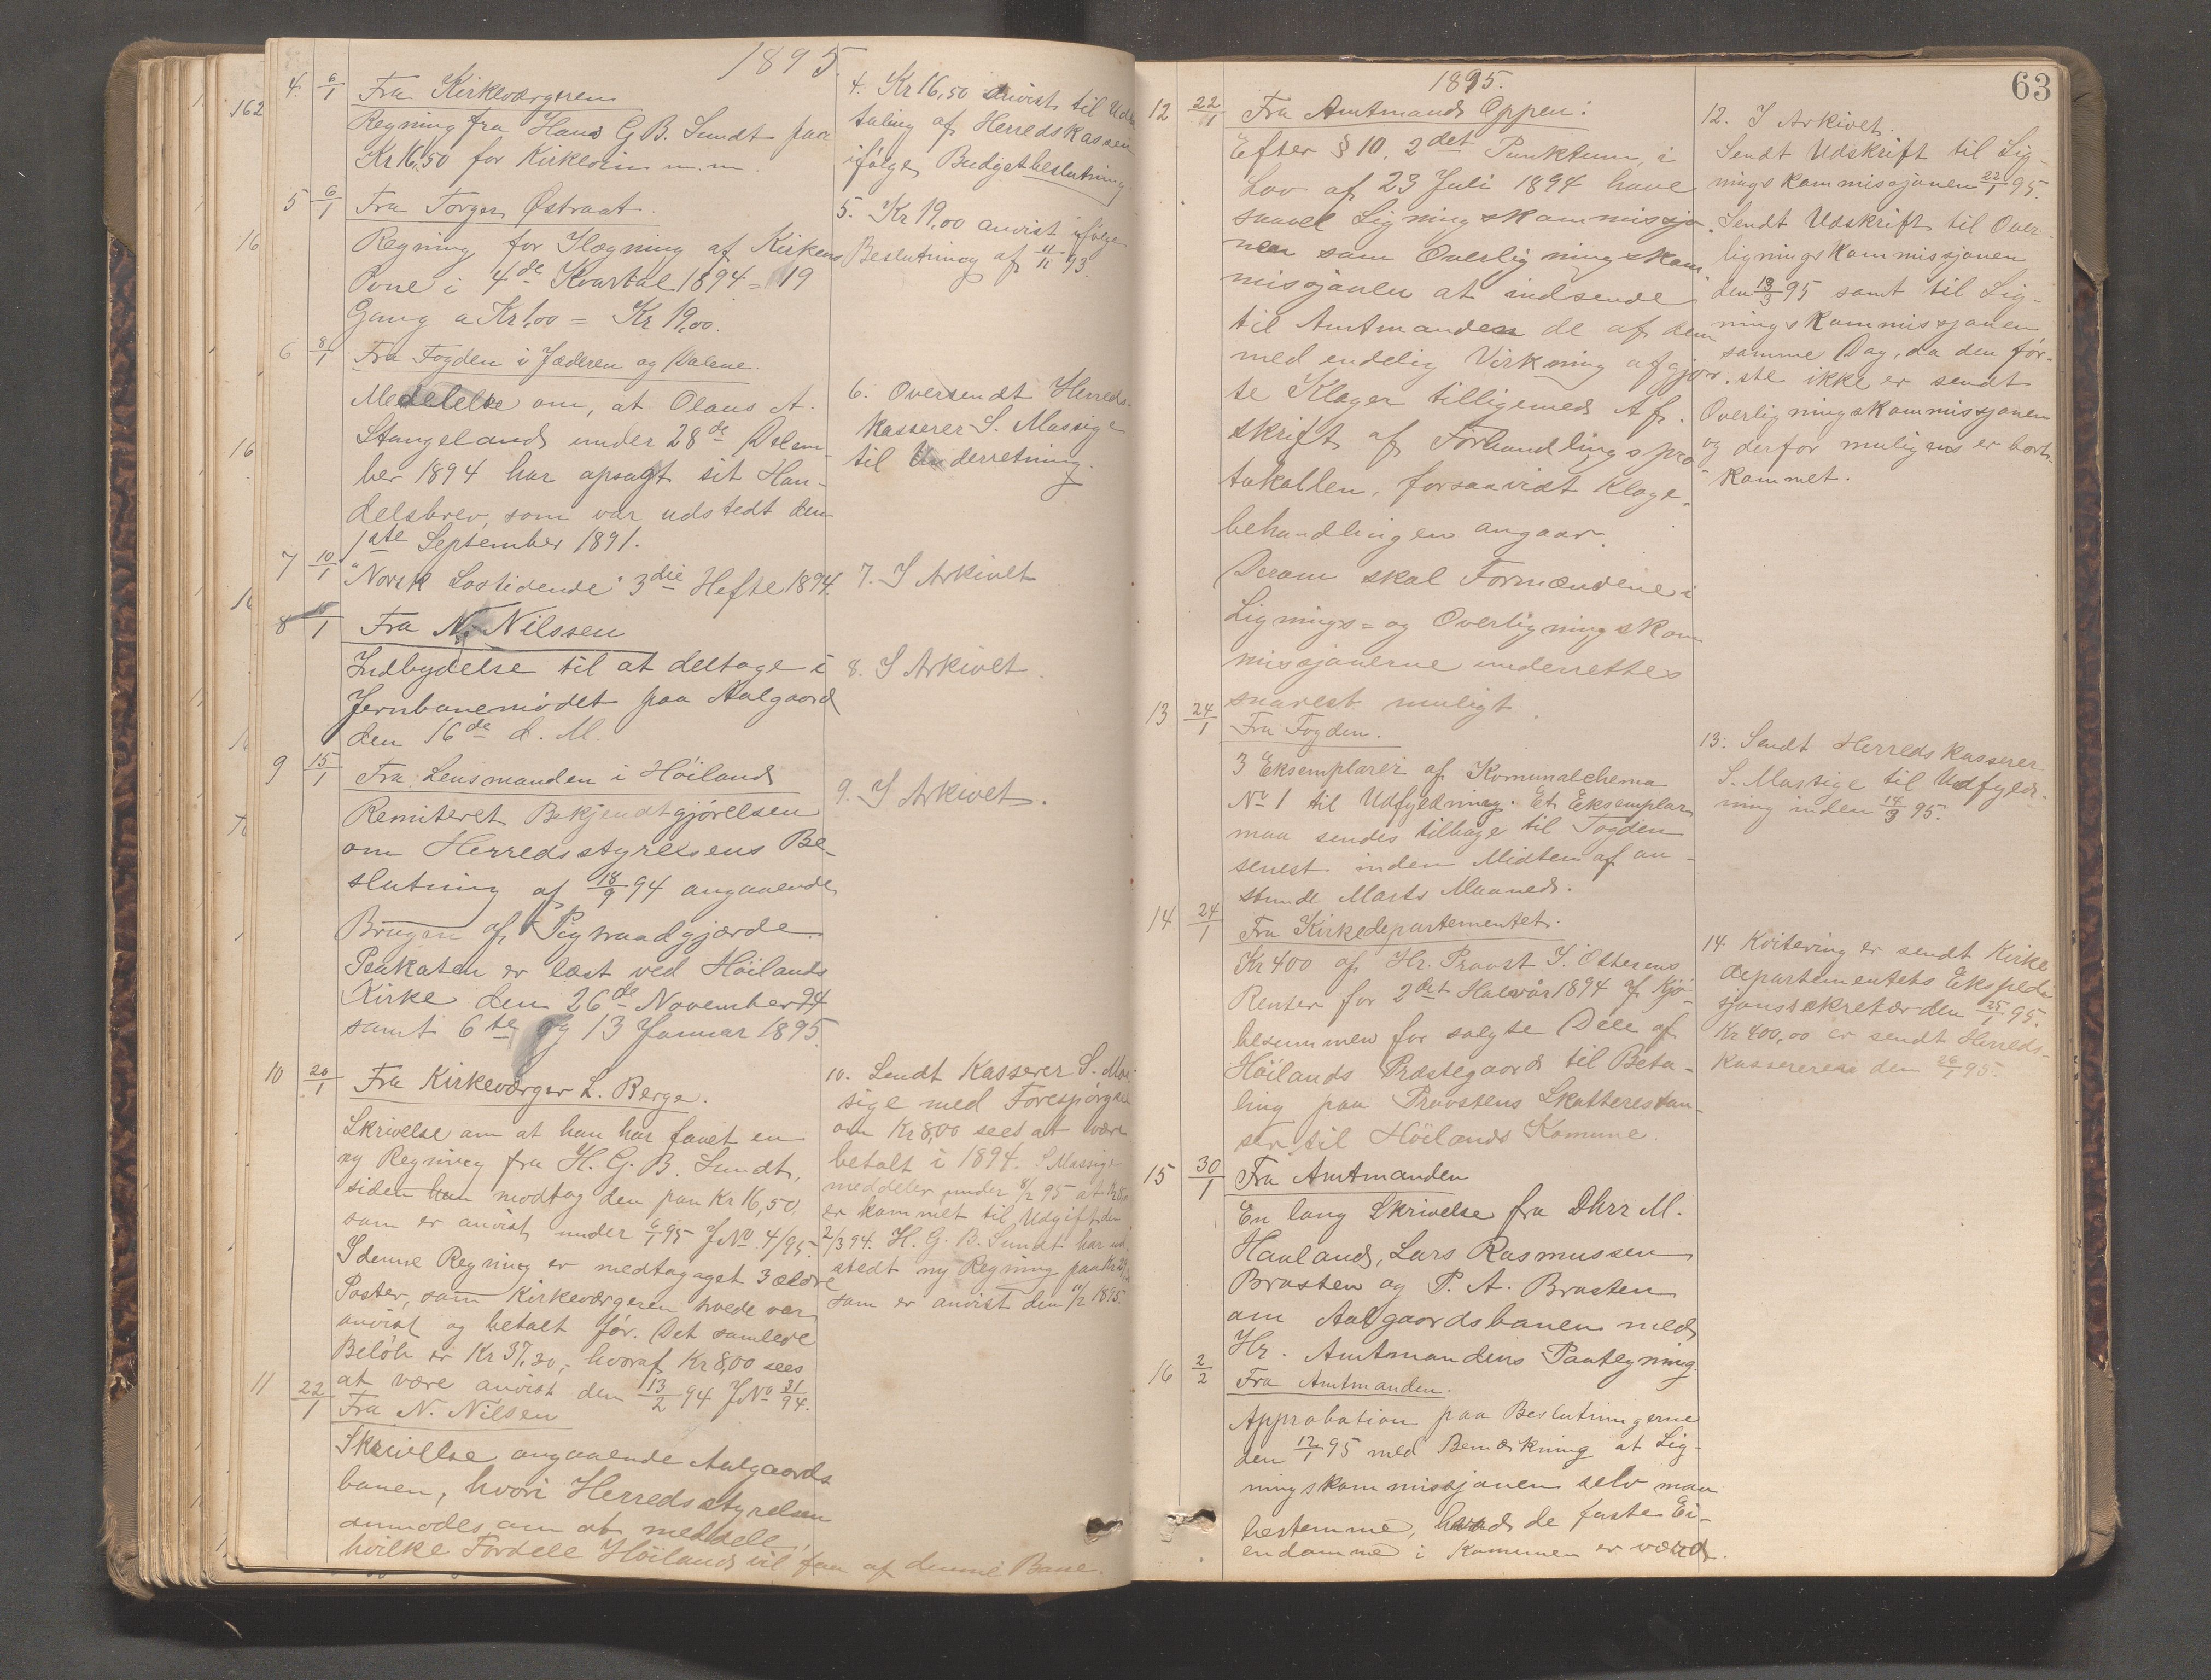 1895.
4. 6/1 Fra Kirkeværgeren
Regning fra Hans G. B. Sundt paa
Kr 16,50 for Kirkevin m. m.
5 6/1 Fra Torger Østraat.
Regning for Ilægning af Kirkens
Ovne i 4de Kvartal 1894 = 19
Gang a Kr 1,00 = Kr 19,00.
6 8/1 Fra Fogden i Jæderen og Dalene.
Meddelelse om, at Olaus A.
Stangeland under 28de Desem-
ber 1894 har opsagt sit Han-
delsbrev, som var udstedt den
1ste September 1891.
7 10/1 "Norsk Lovtidende" 3die Hefte 1894.
8 /1 Fra N. Nilssen
Indbydelse til at deltage i
Jernbanemödet paa Aalgaard
den 16de d. M.
9 15/1 Fra Lensmanden i Höiland
Remiteret Bekjendtgjörelsen
om Herredsstyrelsens Be-
slutning af 18/9 94 angaaende
Brugen af Pigtraadgjærde.
Plakaten er læst ved Höilands
Kirke den 26de November 94
samt 6te og 13 Januar 1895.
10 20/1 Fra Kirkeværger L. Berge.
Skrivelse om at han har faaet en
ny Regning fra H. G. B. Sundt,
siden han modtog den paa Kr 16,50,
som er anvist under 6/1 95 J№ 4/95.
I denne Regning er medtagaget 3 ældre
Poster, som Kirkeværgeren troede var
anvist og betalt för. Det samlede
Belöb er Kr 37,30, hvoraf Kr 8,00 sees
at være anvist den 13/2 94 J№ 31/94.
11 22/1 Fra N. Nilsen
Skrivelse angaaende Aalgaards
banen, hvori Herredsstyrelsen
anmodes om at meddele,
hvilke Fordele Höiland vil faa af denne Bane.
4. Kr 16,50 anvist til Udbe
taling af Herredskassen
ifölge Budgetbeslutning.
5. Kr 19,00 anvist ifölge
Beslutning af 11/11 93.
6. Oversendt Herreds-
kasserer S. Massige
til Underretning.
7. I Arkivet
8. I Arkivet.
9. I Arkivet.
10. Sendt Kasserer S. Mas-
sige med Forespörgsel
om Kr 8,00 sees at være
betalt i 1894. S Massige
meddeler under 8/2 95 at Kr 8,
er kommet til Udgift den
2/3 94. H. G. B. Sundt har ud-
stedt ny Regning paa Kr
som er anvist den 11/2 1895.
162
16
16
63
1895.
12 22/1 Fra Amtmand Oppen:
Efter § 10, 2det Punktum, i
Lov af 23 Juli 1894 have
saavel Ligningskommissjo-
nen som Overligningskom-
missjonen at indsende
til Amtmanden de af dem
med endelig Virkning afgjor-
te Klager tilligemed Af-
skrift af Forhandlingspro-
tokollen, forsaavidt Klage-
behandlingen angaar.
Derom skal Formændene i
Lignings= og Overligningskom
missjonerne underrettes
snarest muligt.
13 24/1 Fra Fogden.
3 Eksemplarer af Komunalchema
№ 1 til Udfyldning. Et Eksemplar
maa sendes tilbage til Fogden
senest inden Midten af an-
stunde Marts Maaned.
14 24/1 Fra Kirkedepartementet.
Kr 400 af Hr. Provst J. Oftesens
Renter for 2det Halvår 1894 af Kjö-
besummen for solgte Dele af
Höilands Præstegaard til Beta-
ling paa Provstens Skatterestan-
ser til Höilands Komune.
15 30/1 Fra Amtmanden
En lang Skrivelse fra Dhrr M.
Hauland, Lars Rasmussen
Brasten og P. A. Brasten
om Aalgaardsbanen med
Hr. Amtmandens Paategning.
16 2/2 Fra Amtmanden.
Approbation paa Beslutningerne
den 12/1 95 med Bemærkning at Lig-
ningskommissjonen selv maa
bestemme, hvad de faste Ei-
endomme i Kommunen er værd.
12. I Arkivet.
Sendt Udskrift til Lig-
ningskommissjonen 22/1 95.
Sendt Udskrift til Over-
ligningskommissjonen
den 13/3 95 samt til Lig-
ningskommissjonen
samme Dag, da den för-
ste ikke er sendt
Overligningskommissjonen
og derfor muligens er bort-
kommet.
13. Sendt Herredskasserer
S. Massige til Udfyld-
ning inden 14/3 95.
14 Kvitering er sendt Kirke
departementets Ekspedi
sjonssekretær den 25/1 95.
Kr 400,00 er sendt Herreds-
kassereren den 26/1 95.